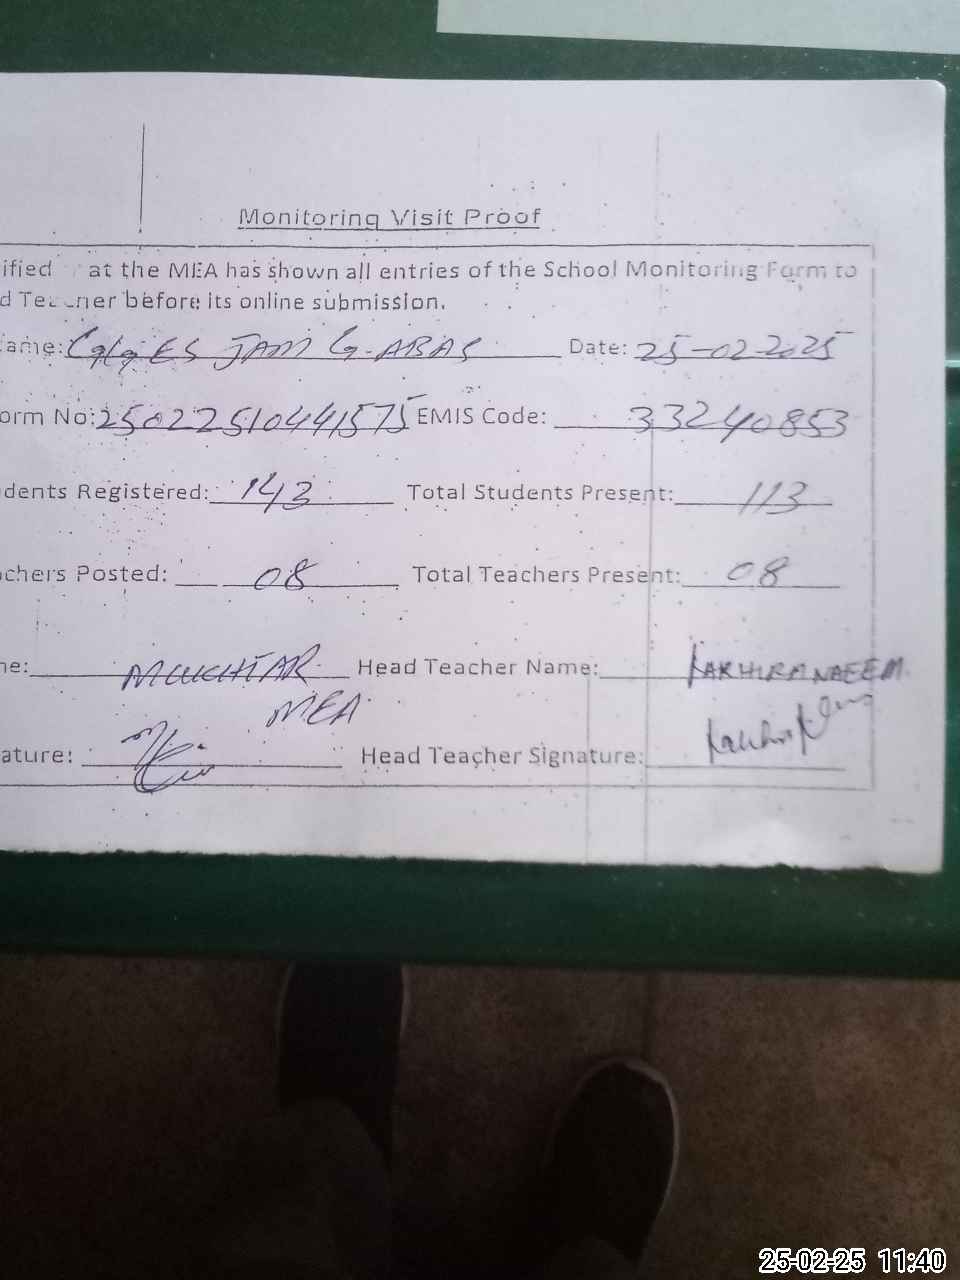 Monitoring Visit Proof
ified at the MEA has shown all entries of the School Monitoring Form to
d Teacher before its online submission.
ame: GGES JAM G. ABAS Date: 25-02-2025
orm No: 25022510441575 EMIS Code: 33240853
dents Registered: 143 Total Students Present: 113
chers Posted: 08 Total Teachers Present: 08
ne: MUKHTAR Head Teacher Name: NAEEM
MEA
ature: Head Teacher Signature:
25-02-25 11:40